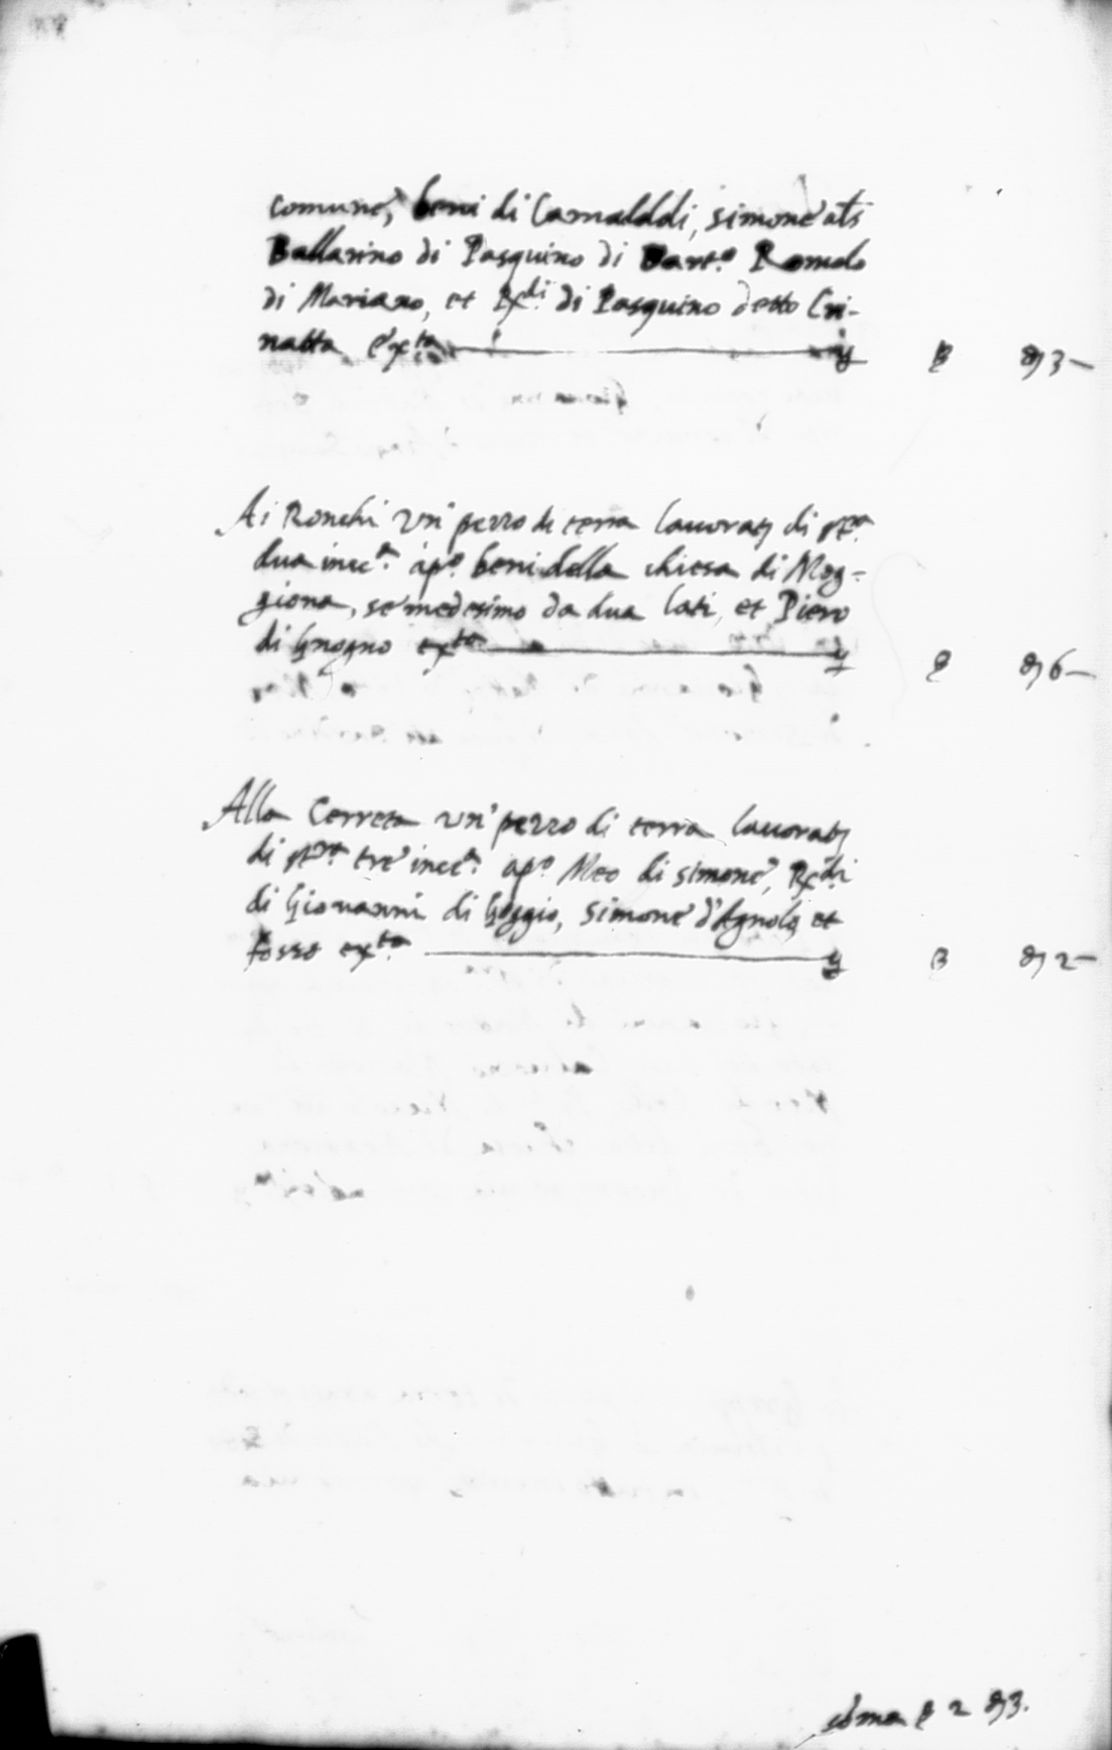 comune, beni di Camaldoli, simone als
Ballarino di Pasquino di Bart.o Romolo
di Mariano, et Rx.di di Pasquino detto Cri-
natta ext.a
Ai Ronchi un' pezzo di terra lauorat di pt.ra
dua inc.a ap.o beni della chiesa di Mog-
giona, se medesimo da dua lati, et Piero
di Gnogno ext.a
Alla Cerreta un' pezzo di terra lauorat
di pt.ra tre inc.a ap.o Meo di simone, Rx.di
di Giovanni di Goggio, Simone d'Agnolo et
fosso ext.a
soma 2